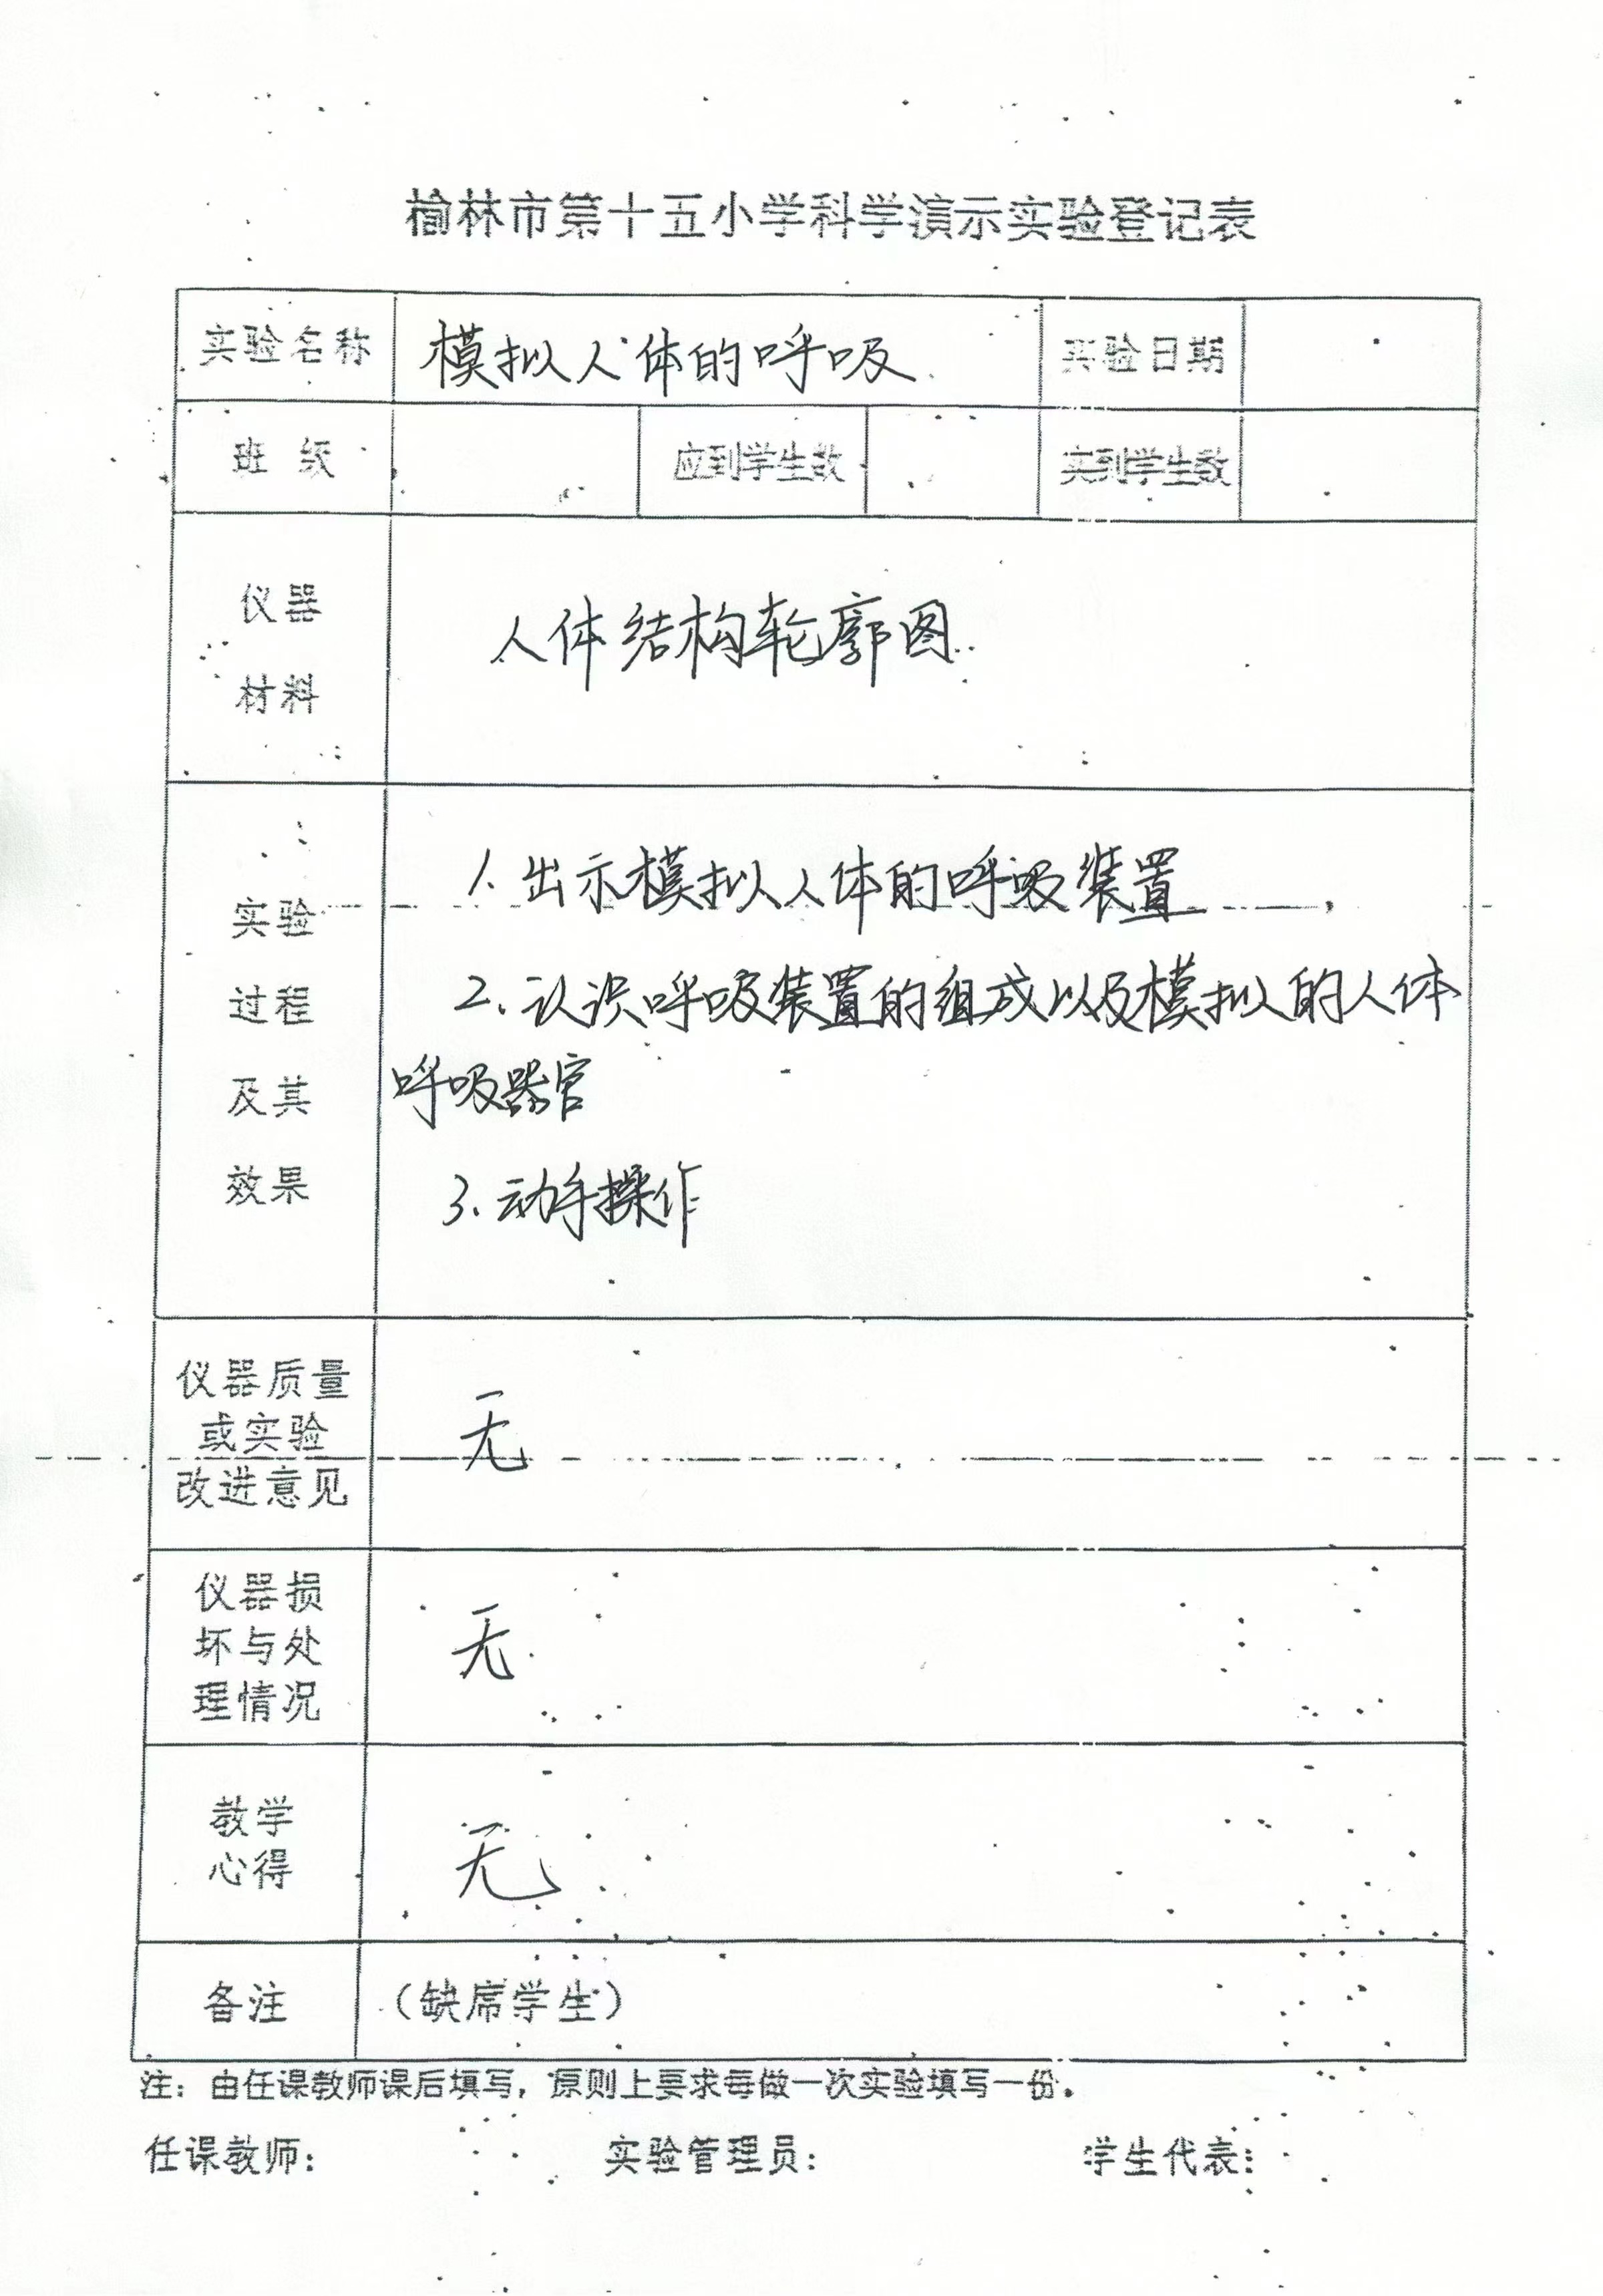 榆林市第十五小学科学演示实验登记表
实验名称 模拟人体的呼吸 实验日期
班 级 应到学生数 实到学生数
仪器
材料
人体结构轮廓图
实验
过程
及其
效果
1. 出示模拟人体的呼吸装置
2. 认识呼吸装置的组成以及模拟的人体
呼吸器官
3. 动手操作
仪器质量
或实验
改进意见
无
仪器损
坏与处
理情况
无
教学
心得
无
备注 （缺席学生）
注：由任课教师课后填写，原则上要求每做一次实验填写一份。
任课教师： 实验管理员： 学生代表：